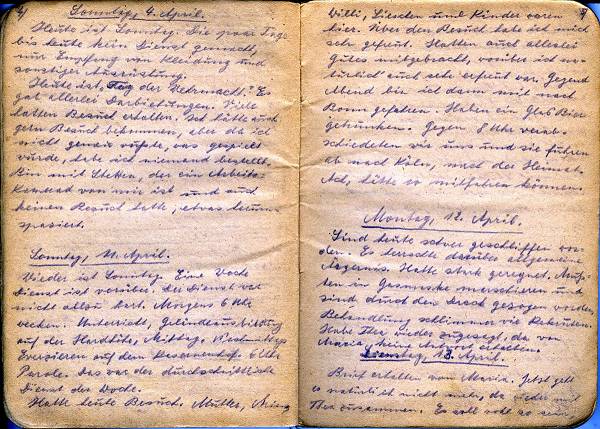 Sonntag, 4. April.
Heute ist Sonntag. Die paar Tage
bis heute kein Dienst gemacht,
nur Empfang von Kleidung und
sonstiger Ausrüstung.
Heute ist „Tag der Wehrmacht." Es
gab allerlei Darbietungen. Viele
hatten Besuch erhalten. Ich hätte auch
gern Besuch bekommen, aber da ich
nicht genau wußte, was gespielt
wurde, habe ich niemand bestellt.
Bin mit Stetten, der ein Arbeits-
kamerad von mir ist und auch
keinen Besuch hatte, etwas herum-
spaziert.
Sonntag, 11. April.
Wieder ist Sonntag. Eine Woche
Dienst ist vorüber. Der Dienst war
nicht allzu hart. Morgens 6 Uhr
wecken. Unterricht, Geländeausbildung
auf der Hardthöhe, Mittag. Nachmittags
Exerzieren auf dem Kasernenhof. 6 Uhr
Parole. Das war der durchschnittliche
Dienst der Woche.
Hatte heute Besuch. Mutter,
Willi, Lieschen und Kinder waren
hier. Über den Besuch habe ich mich
sehr gefreut. Hatten auch allerlei
Gutes mitgebracht, worüber ich na-
türlich auch sehr erfreut war. Gegen
Abend bin ich dann mit nach
Bonn gefahren. Haben ein Glas Bier
getrunken. Gegen 8 Uhr verab-
schiedeten wir uns und sie fuhren
ab nach Köln, nach der Heimat.
Ach, hätte so mitfahren können.
Montag, 12. April.
Sind heute schwer geschliffen wor-
den. Es herrschte darüber allgemeine
Ärgernis. Hatte stark geregnet, Muß-
ten in Gasmaske marschieren und
sind durch den Dreck gezogen worden.
Behandlung schlimmer wie Rekruten.
Habe Thea wieder zugesagt, da von
Maria keine Antwort erhalten.
Dienstag, 13. April.
Brief erhalten von Maria. Jetzt geht
es natürlich nicht mehr, da wieder mit
Thea zusammen. Es soll wohl so sein,